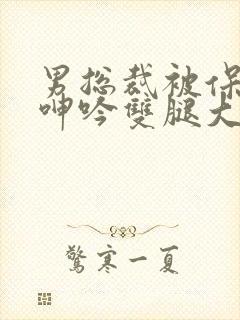 男总裁被保
呻吟雙腿大
驚寒一夏